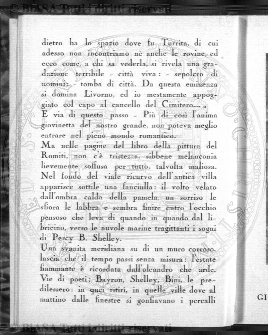 dietro ha lo spazio dove fu Turrita, di cui
adesso non incontriamo né anche le rovine, ed
ecco come, a chi sa vederla, si rivela una gra-
dazione terribile - città viva: - sepolcro di
uomini: - tomba di città. Da questa eminenza
si domina Livorno, ed io mestamente appog-
giato col capo al cancello del Cimitero... »
E via di questo passo - Più di così l'animo
giovinetta del nostro grande, non poteva meglio
entrare nel pieno mondo romantico.
Ma nelle pagine del libro della pittura del
Romiti, non c'è tristezza, sibbene melanconia
lievemente soffusa per tutto, talvolta ombrosa.
Nel fondo del viale ricurvo dell'antica villa
apparisce sottile una fanciulla: il volto velato
dall'ombra calda della pamela, un sorriso le
sfiora le labbra e sembra finire entro l'occhio
pensoso che leva di quando in quando dal li-
bricino, verso le nuvole marine tragittanti i sogni
di Percy B. Shelley.
Una svanita meridiana su di un muro corroso
lascia che il tempo passi senza misura: l'estate
fiammante è ricordata dall'oleandro che arde.
Vie di poeti: Bayron, Shelley, Bini, le pre-
dilessero: in quei ritiri, in quelle ville dove al
mattino dalle finestre si gonfiavano i percalli